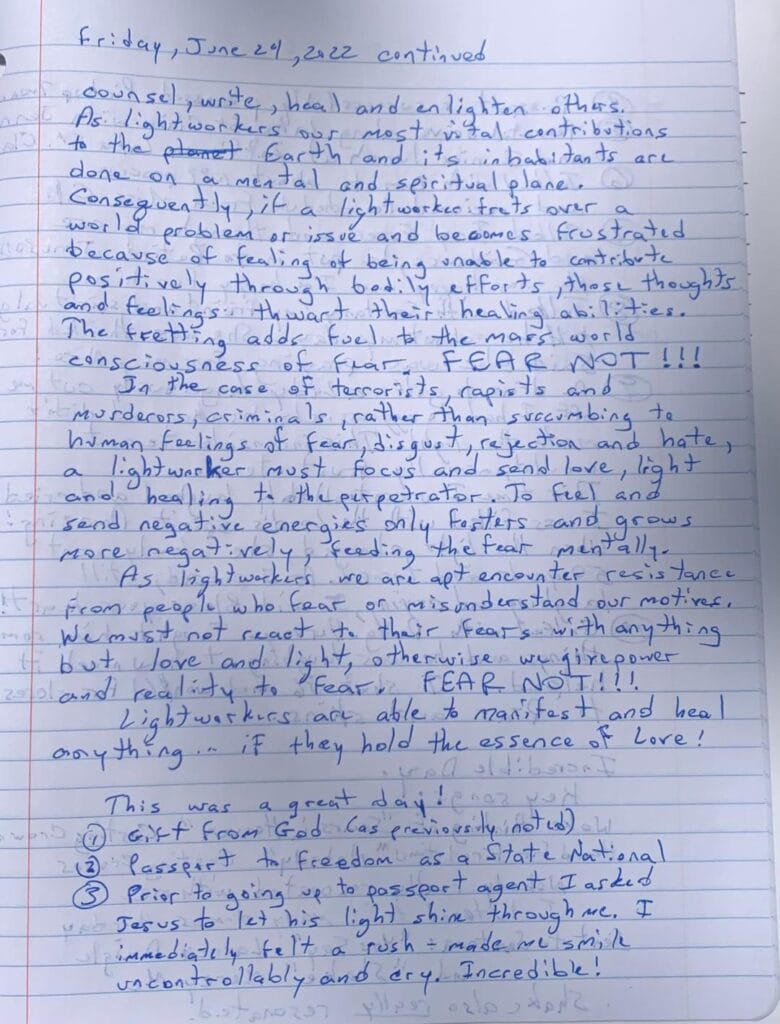 Friday, June 24, 2022 continued
counsel, write, heal and enlighten others.
As lightworkers our most vital contributions
to the planet Earth and its inhabitants are
done on a mental and spiritual plane.
Consequently, if a lightworker frets over a
world problem or issue and becomes frustrated
because of fealing of being unable to contribute
positively through bodily efforts, those thoughts
and feelings thwart their healing abilities.
The fretting adds fuel to the mass world
consciousness of fear. FEAR NOT!!!
In the case of terrorists, rapists and
murderors, criminals, rather than succumbing to
human feelings of fear, disgust, rejection and hate,
a lightworker must focus and send love, light
and healing to the perpetrator. To feel and
send negative energies only fosters and grows
more negatively, feeding the fear mentally.
As lightworkers we are apt encounter resistance
from people who fear or misunderstand our motives.
We must not react to their fears with anything
but love and light, otherwise we give power
and reality to fear. FEAR NOT!!!
Lightworkers are able to manifest and heal
anything... if they hold the essence of Love!
This was a great day!
① Gift from God (as previously noted)
② Passport to freedom as a State National
③ Prior to going up to passport agent I asked
Jesus to let his light shine through me. I
immediately felt a rush ÷ made me smile
uncontrollably and cry. Incredible!